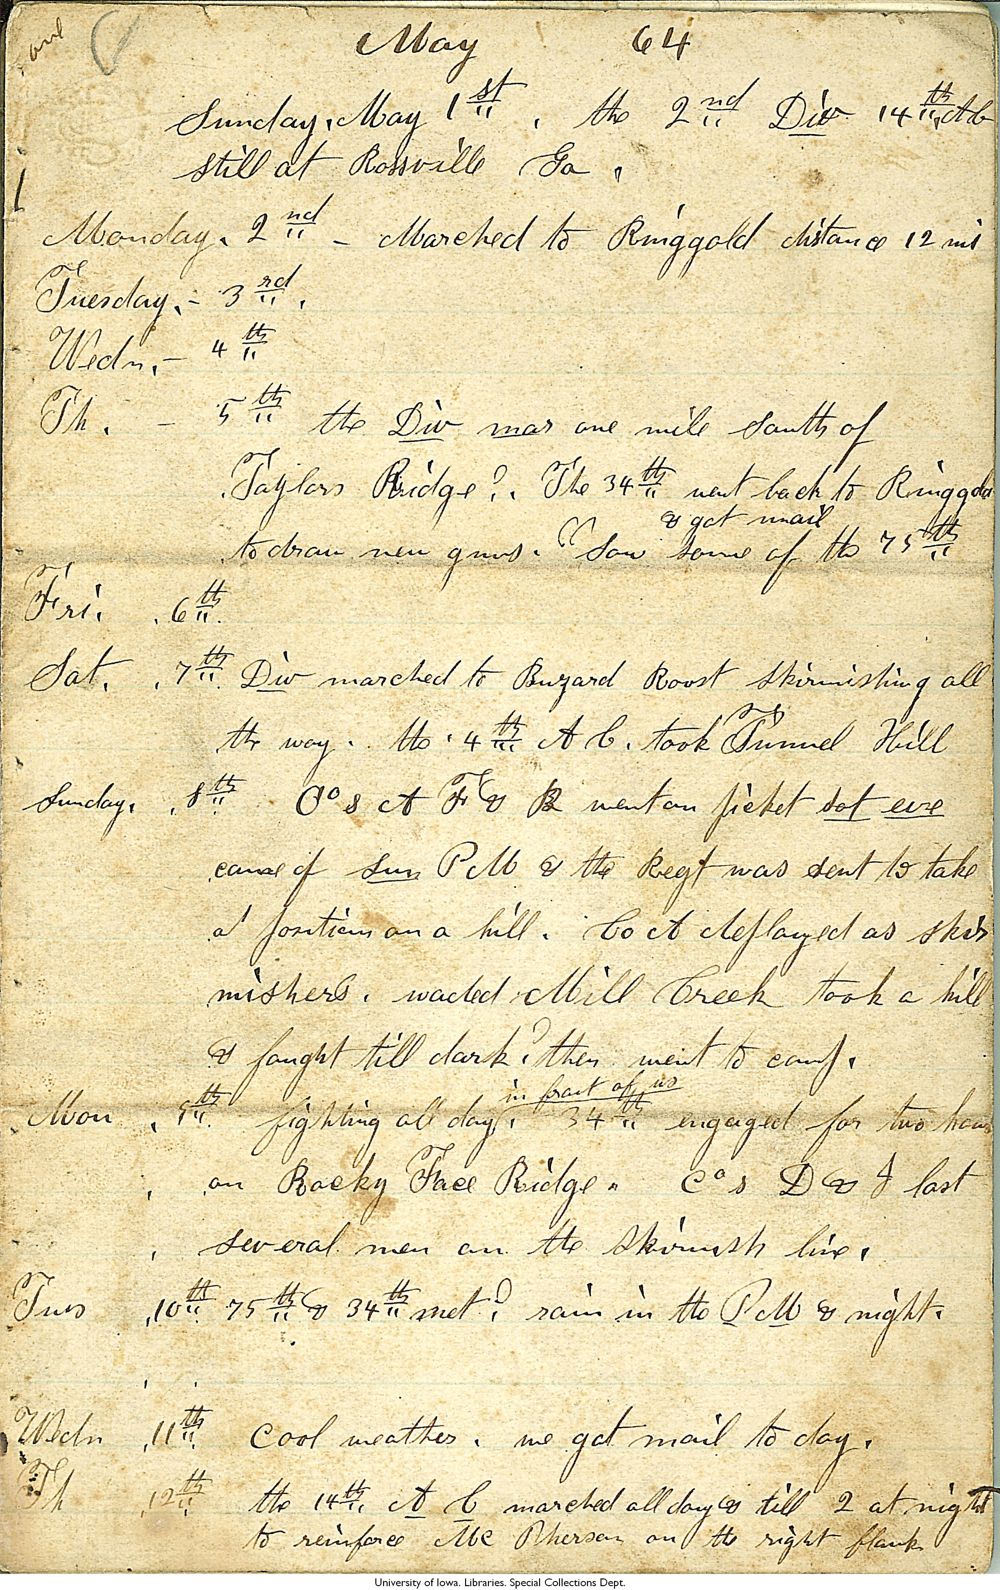 one
May 64
Sunday, May 1st, the 2nd Div 14th A C
still at Rossville Ga,
Monday, 2nd - Marched to Ringgold distance 12 mi
Tuesday, - 3rd,
Wedn, - 4th
Th. - 5th the Div mar one mile south of
Taylors Ridge. The 34th went back to Ringgold
& got mail
to draw new guns. Saw some of the 75th
Fri. 6th
Sat. 7th Div marched to Buzard Roost skirmishing all
the way. the 4th A C. took Tunnel Hill
Sunday, 8th Cos A F & B went on picket
came of P M & the Regt was sent to take
a position on a hill. Co A deployed as skir
mishers. waded Mill Creek took a hill
& fought till dark, then went to camp.
in front of us
Mon 9th. fighting all day. 34th engaged for two hours
on Rocky Face Ridge. Cos D & I lost
several men on the skirmish line,
Tues 10th 75th & 34th met. rain in the P M & night.
Wedn 11th cool weather. we got mail to day.
Th 12th the 14th A C marched all day & till 2 at night
to reinforce Mc Pherson on the right flank
University of Iowa. Libraries. Special Collections Dept.